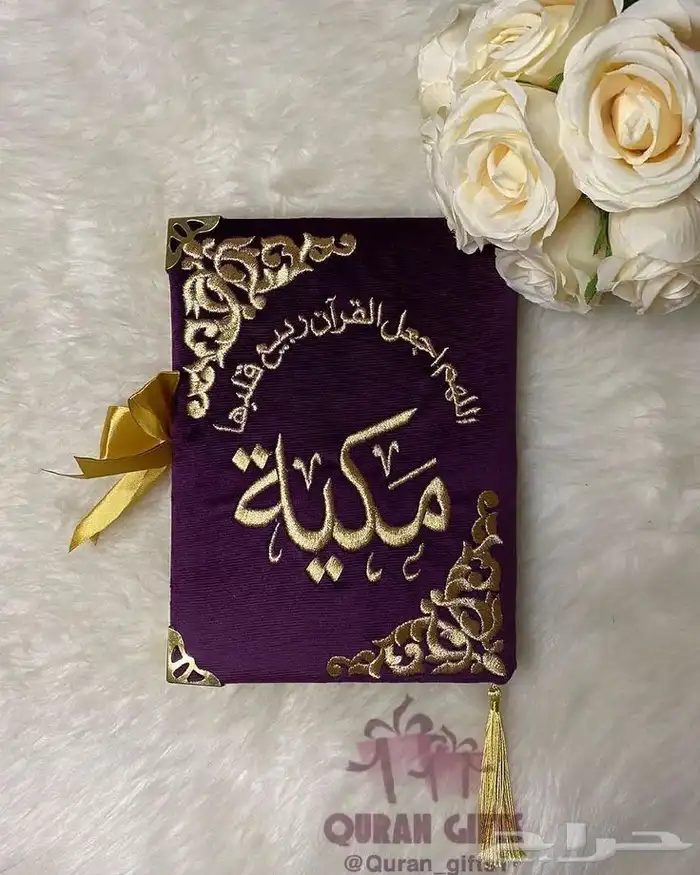 اللهم اجعل القرآن ربيع قلبها
مكية
QURAN GIFTS
@Quran_gifts1
حراج